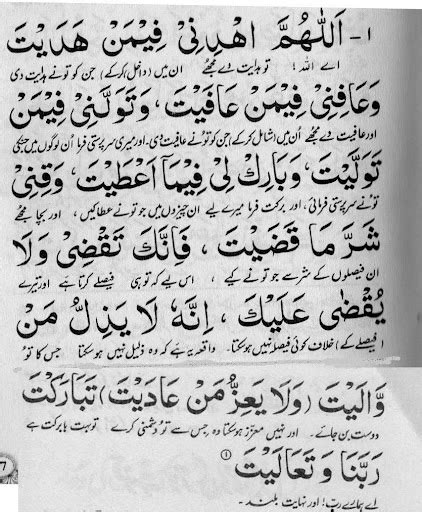 ۱- اَللّٰهُمَّ اهْدِنِیْ فِیْمَنْ هَدَیْتَ
اے اللہ! تو ہدایت دے مجھے ان میں (داخل کر کے) جن کو تو نے ہدایت دی
وَعَافِنِیْ فِیْمَنْ عَافَیْتَ، وَتَوَلَّنِیْ فِیْمَنْ
اور عافیت دے مجھے اُن میں (شامل کر کے) جن کو تو نے عافیت دی، اور میری سرپرستی فرما اُن لوگوں میں جنکی
تَوَلَّیْتَ، وَبَارِكْ لِیْ فِیْمَا اَعْطَیْتَ، وَقِنِیْ
تو نے سرپرستی فرمائی، اور برکت فرما میرے لیے ان چیزوں میں جو تو نے عطا کیں، اور بچا مجھے
شَرَّ مَا قَضَیْتَ، فَاِنَّكَ تَقْضِیْ وَلَا
ان فیصلوں کے شر سے جو تو نے کیے، اس لیے کہ تو ہی فیصلے کرتا ہے اور تیرے
یُقْضٰی عَلَیْكَ، اِنَّهٗ لَا یَذِلُّ مَنْ
(فیصلے کے) خلاف کوئی فیصلہ نہیں ہوسکتا۔ واقعہ یہ ہے کہ وہ ذلیل نہیں ہوسکتا جس کا تو
وَّالَیْتَ (وَلَا یَعِزُّ مَنْ عَادَیْتَ) تَبَارَكْتَ
دوست بن جائے۔ اور نہیں معزز ہوسکتا وہ، جس سے تو دشمنی کرے تو بہت بابرکت ہے
رَبَّنَا وَتَعَالَیْتَ (۱)
اے ہمارے رب! اور نہایت بلند۔